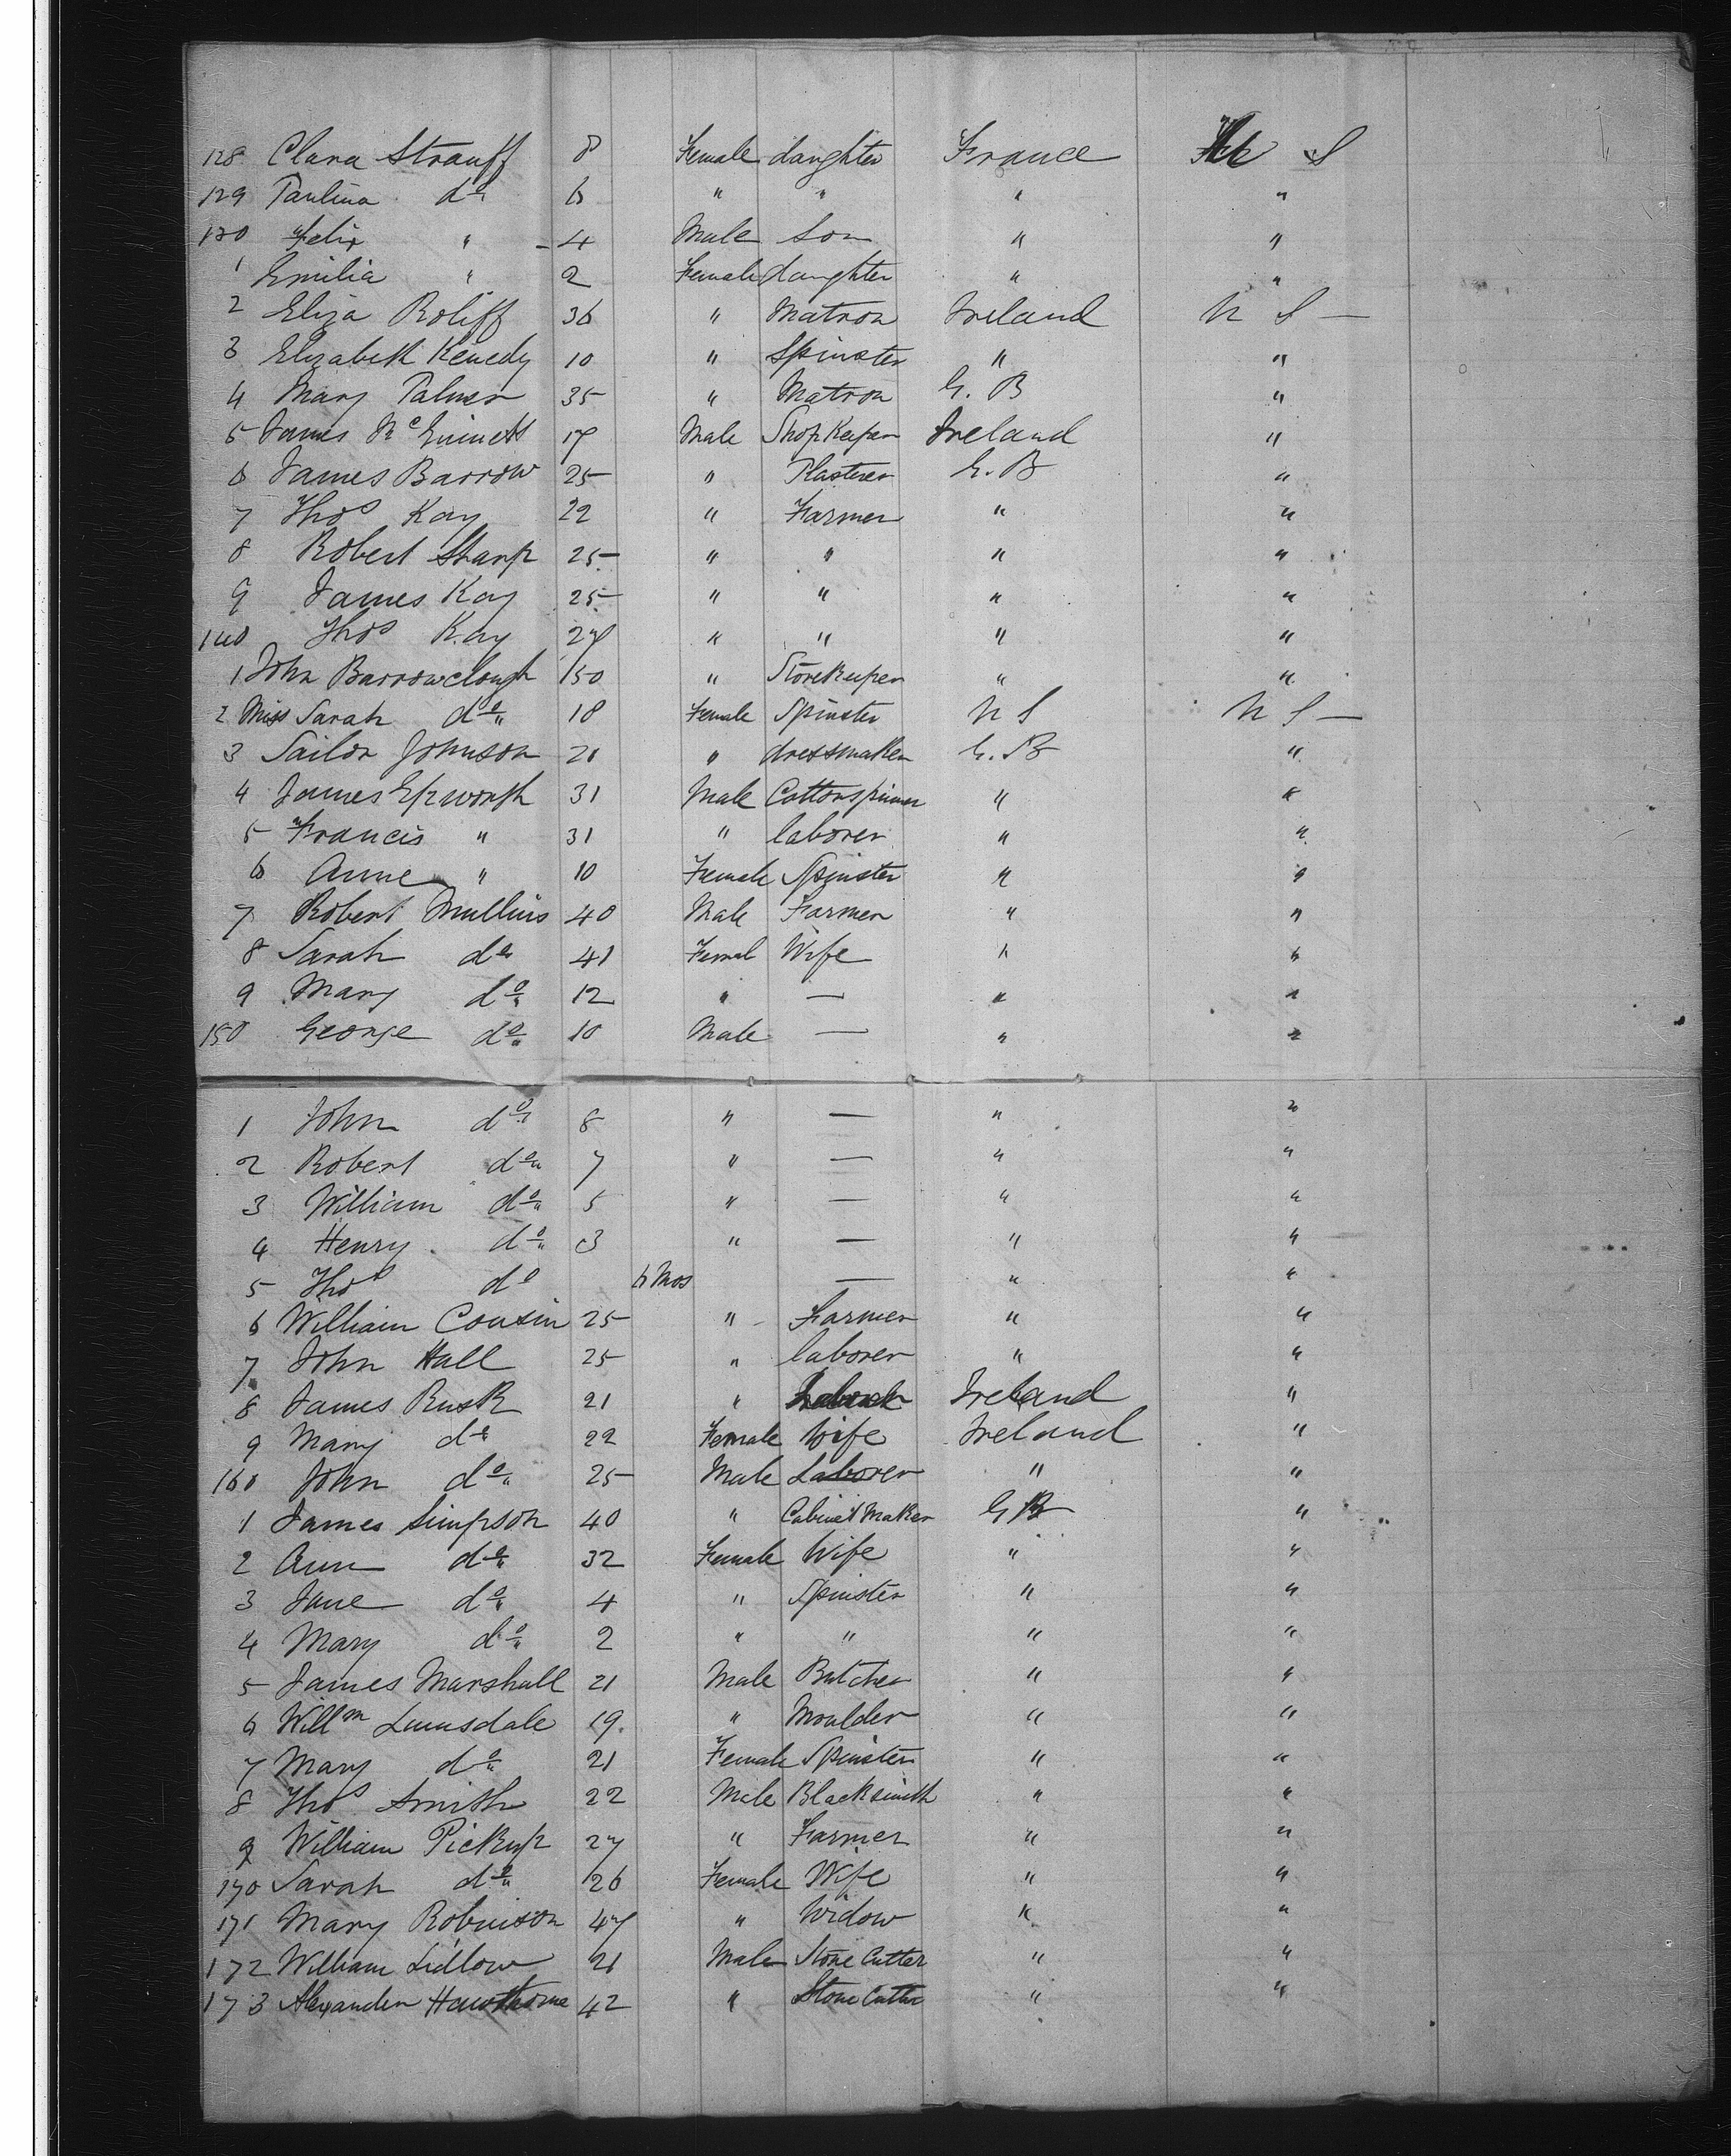 128 Clara Strauff 8 Female daughter France U S
129 Paulina do 6 " " " "
130 Felix " 4 Male Son " "
1 Emilia " 2 Female daughter " "
2 Eliza Roliff 36 " Matron Ireland U S —
3 Elizabeth Kenedy 10 " Spinster " "
4 Mary Palmer 35 " Matron G. B "
5 James Mc Emmett 17 Male Shop Keeper Ireland "
6 James Barrow 25 " Plasterer G. B "
7 Thos Kay 22 " Farmer " "
8 Robert Sharp 25 " " " "
9 James Kay 25 " " " "
140 Thos Kay 27 " " " "
1 John Barrowclough 50 " Storekeeper " "
2 Miss Sarah do 18 Female Spinster U S U S —
3 Sailor Johnson 20 " dressmaker G. B "
4 James Epworth 31 Male Cottonspinner " "
5 Francis " 31 " laborer " "
6 Anne " 10 Female Spinster " "
7 Robert Mullins 40 Male Farmer " "
8 Sarah do 41 Femal Wife " "
9 Mary do 12 " — " "
150 George do 10 Male — " "
1 John do 8 " — " "
2 Robert do 7 " — " "
3 William do 5 " — " "
4 Henry do 3 " — " "
5 Thos do 6 Mos — " "
6 William Cousin 25 " Farmer " "
7 John Hall 25 " laborer " "
8 James Rusk 21 " Ireland "
9 Mary do 22 Female Wife Ireland "
160 John do 25 Male Laborer " "
1 James Simpson 40 " Cabinet Maker G B "
2 Ann do 32 Female Wife " "
3 Jane do 4 " Spinster " "
4 Mary do 2 " " " "
5 James Marshall 21 Male Butcher " "
6 Willm Lumsdale 19. " Moulder " "
7 Mary do 21 Female Spinster " "
8 Thos Smith 22 Male Blacksmith " "
9 William Pickup 27 " Farmer " "
170 Sarah do 26 Female Wife " "
171 Mary Robinson 47 " Widow " "
172 William Lidlow 21 Male Stone Cutter " "
173 Alexander Hawthorne 42 " Stone Cutter " "